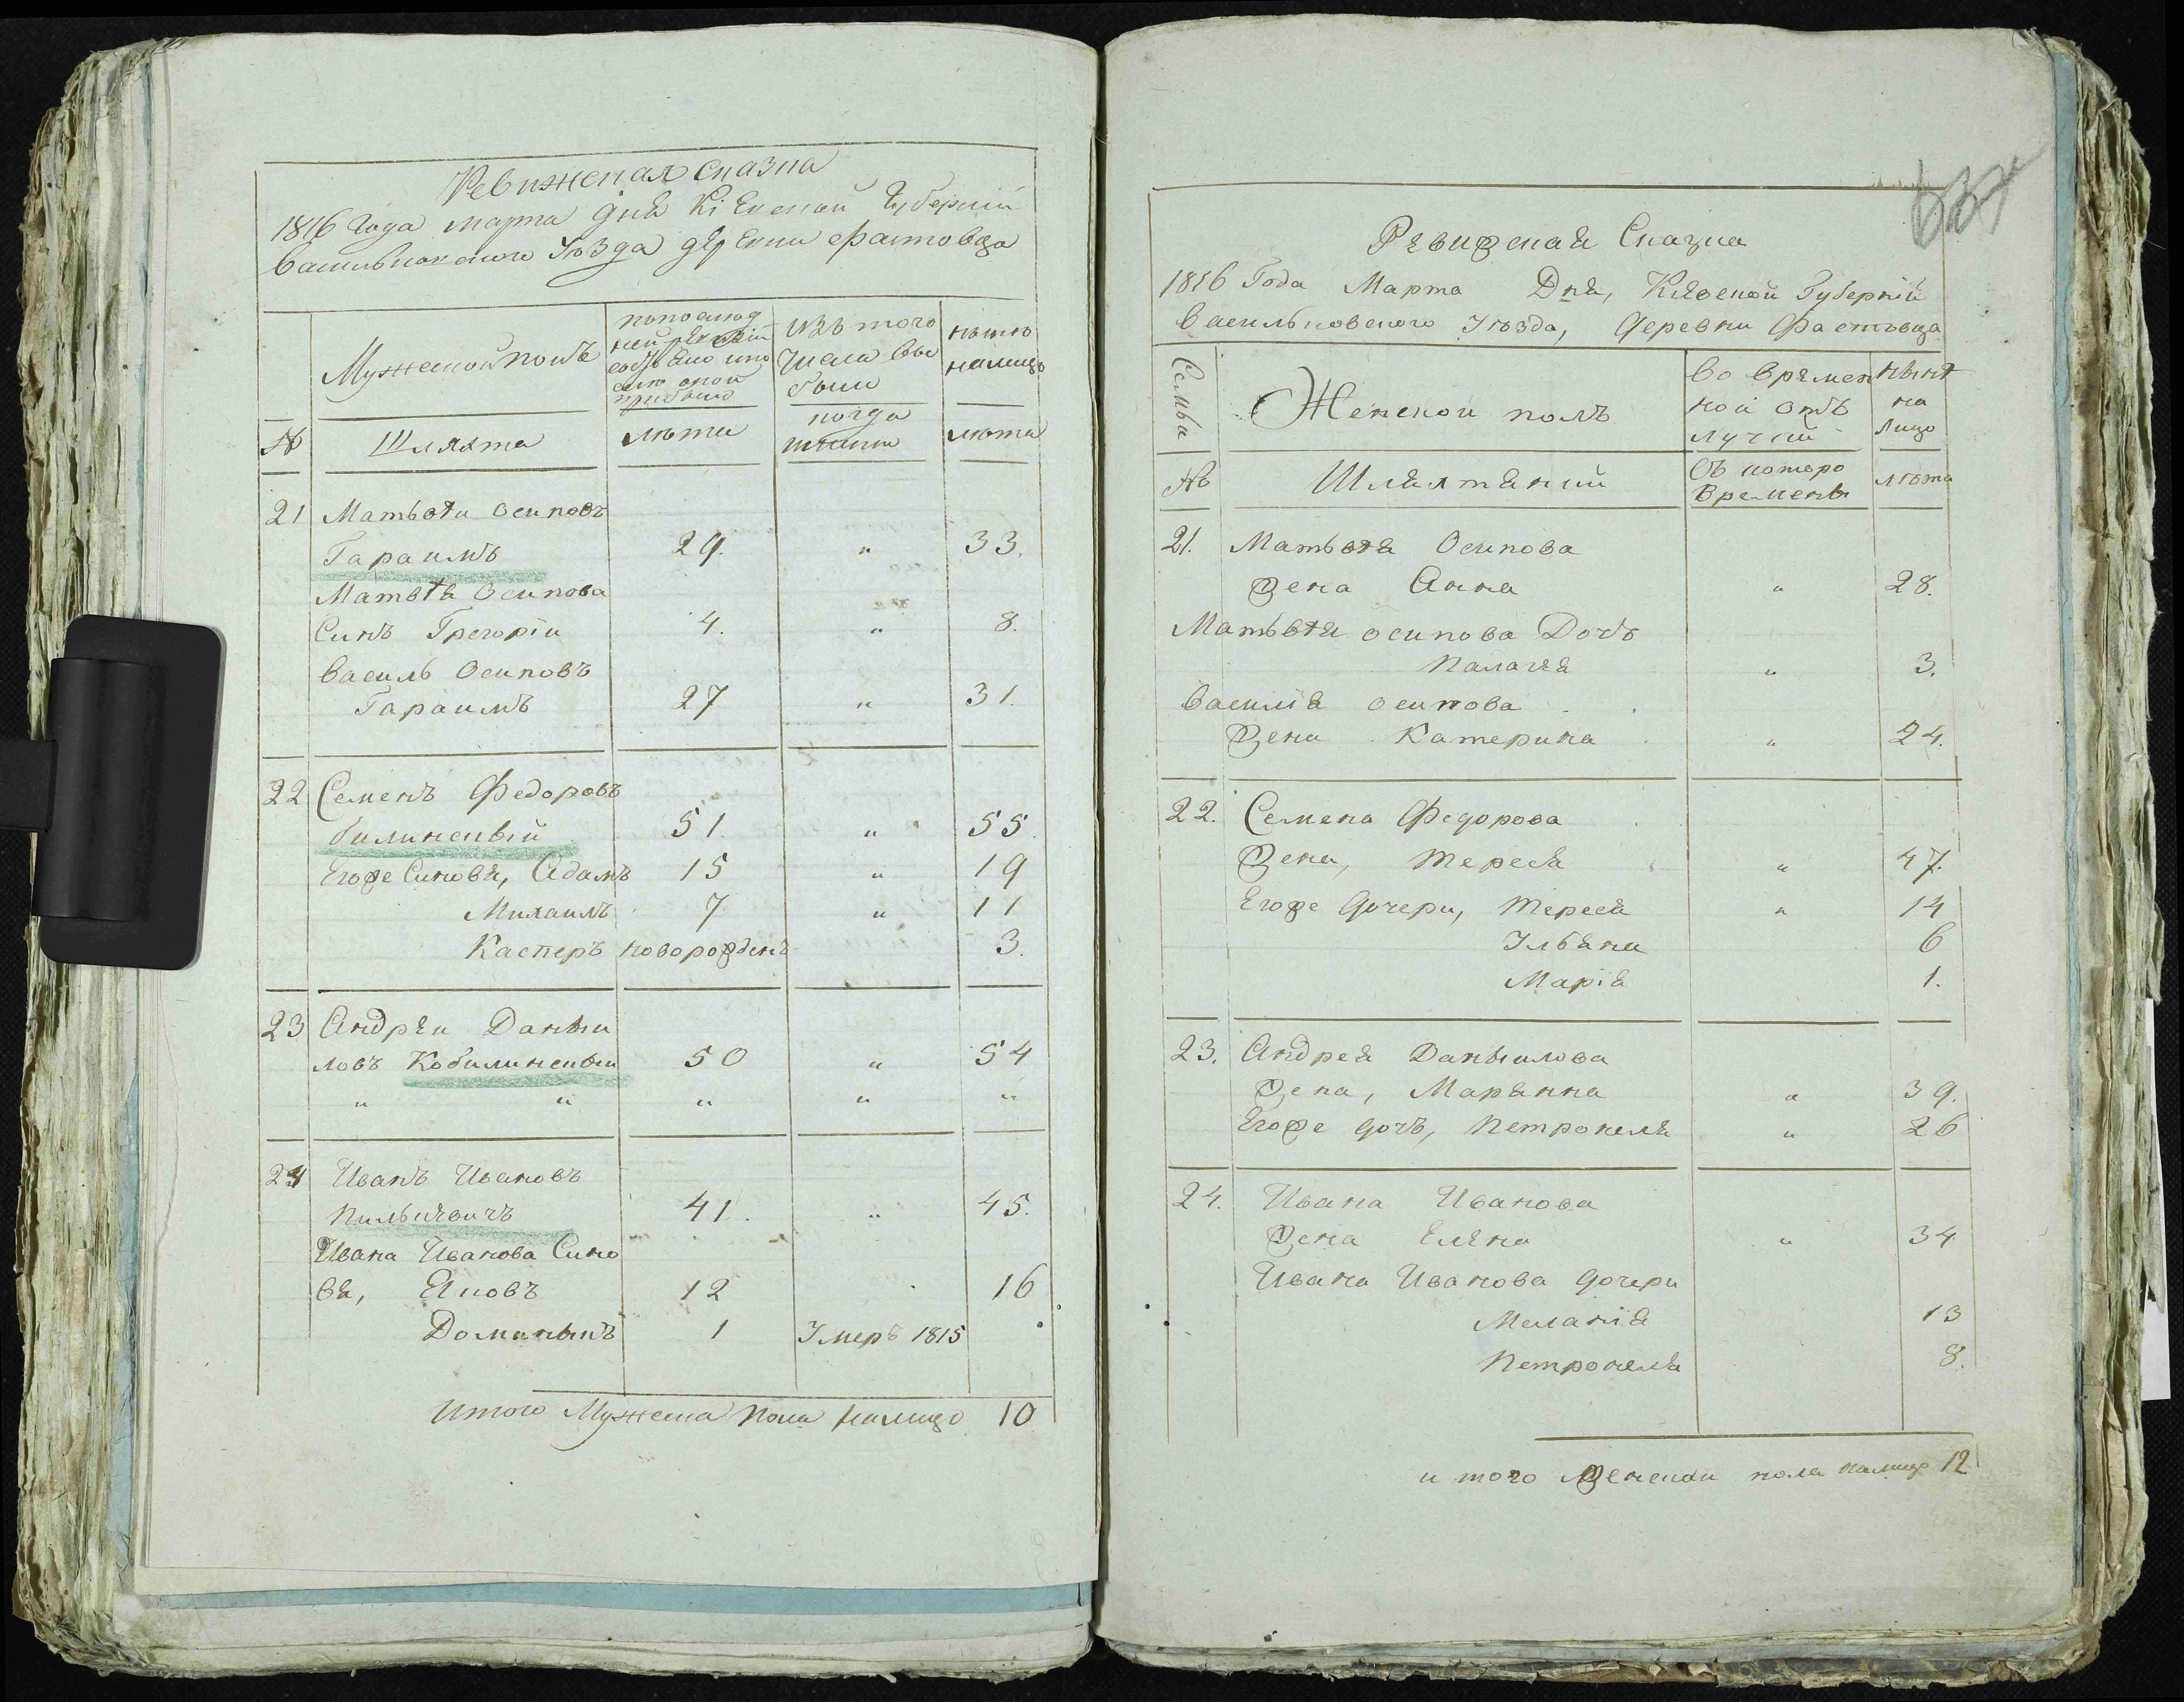 Ревижская Сказка
1816 Года марта дня Кіевской Губерніи
Васильковского Уѣзда деревни Фастовца
Мужеской полъ
по послѣд
ней ревизіи
состояло и по
слѣ оной
прибыло
Изъ того
числа вы
было
нынѣ
налицо
№
Шляхта
лѣта
когда
лѣта
21 Матьвѣи Осиповъ
Гараимъ 29. " 33.
Матвѣя Осипова
Синъ Грегоріи 4. " 8.
Василь Осиповъ
Гараимъ 27 " 31.
22 Семенъ Федоровъ
билинскый 51. " 55.
Егоже Синовя, Адамъ 15 " 19
Михаилъ 7 " 11
Касперъ новорожденъ 3.
23 Андреи Даныи
ловъ Кобилинскыи 50 " 54
" " " " "
24 Иванъ Ивановъ
Пилькевичъ 41. " 45.
Ивана Иванова Сино
вя, Яковъ 12 16
Доминыкъ 1 Умеръ 1815
Итого Мужеска пола налицо 10
Ревизская Сказка
1816 Года Марта Дня, Кіевской Губерніи
Васильковского Уѣзда, Деревни Фастовца
Семья
Женской полъ
Во времен
ной отъ
лучки
нынѣ
на
лицо
№
Шляхтянки
Съ которо
времены
лѣта
21. Матьвѣя Осипова
Жена Анна " 28.
Матьвѣя Осипова Дочъ
Палагея " 3.
Василія Осипова
Жена Катерина " 24.
22. Семена Федорова
Жена, Тереся " 47.
Егоже дочери, Тереся " 14
Ульяна 6
Марія 1.
23. Андрея Даныилова
Жена, Марянна " 39.
Егоже дочъ, Петронеля " 26
24. Ивана Иванова
Жена Елена " 34
Ивана Иванова дочери
Меланія 13
Петронеля 8.
и того Женскаи пола налицо 12